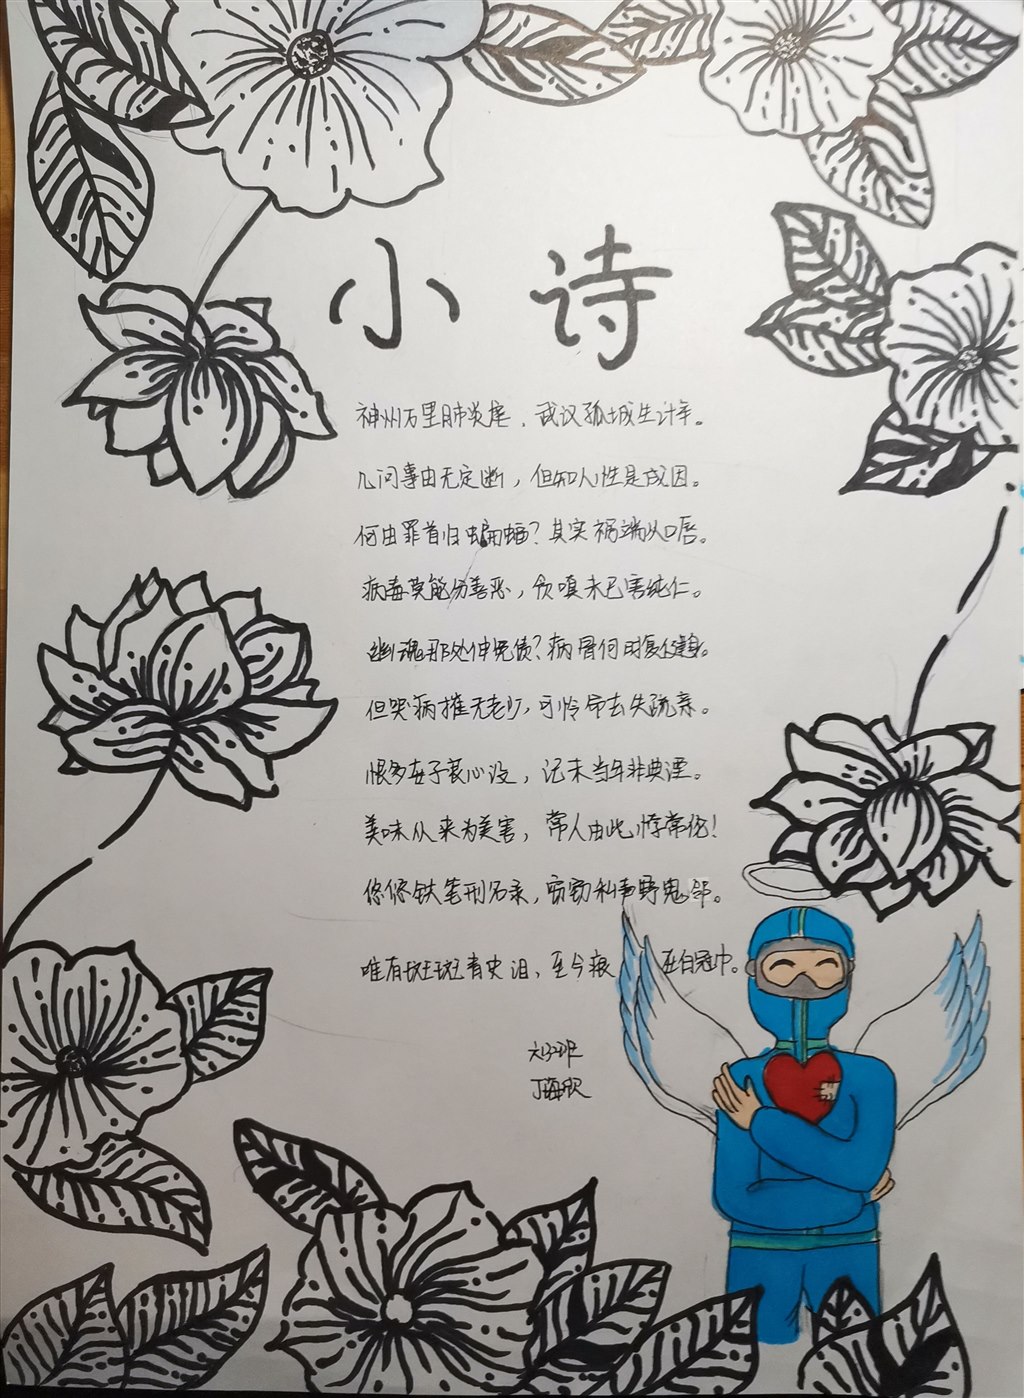 小诗
神州万里肺炎虐，武汉孤城生计牢。
几问事由无定断，但知人性是成因。
何由罪首归蝙蝠？其实祸端从口唇。
病毒莫能分善恶，贪嗔未已害纯仁。
幽魂那处伸冤债？病骨何时复健身。
但哭病摧无老少，可怜命去失疏亲。
恨多每子衰心没，记未当年非典湮。
美味从来为美害，常人由此悖常伦！
悠悠铁笔刑名录，窃窃私声野鬼邻。
唯有斑斑青史泪，至今痕 在白冠巾。
六 班
丁海欣